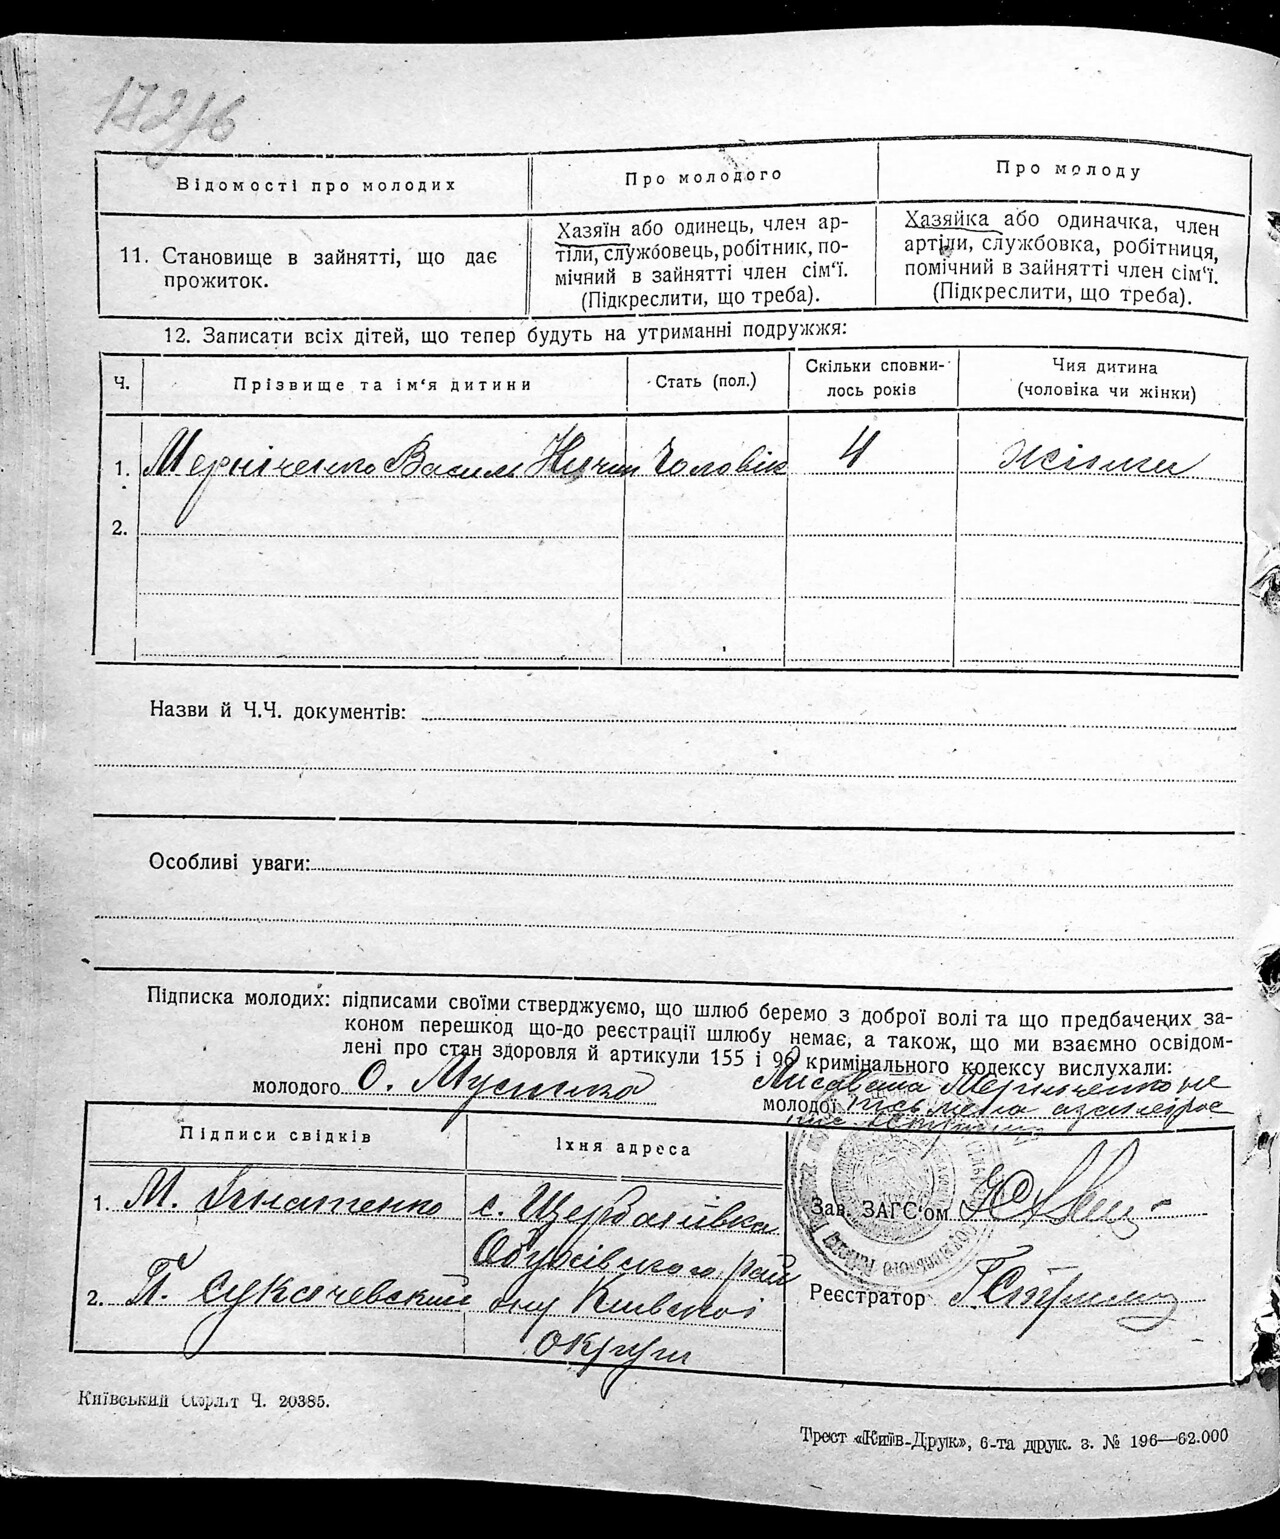 Відомості про молодих
Про молодого
Про молоду
11. Становище в зайнятті, що дає
прожиток.
Хазяїн або одинець, член ар-
тіли, службовець, робітник, по-
мічний в зайнятті член сім'ї.
(Підкреслити, що треба).
Хазяйка або одиначка, член
артіли, службовка, робітниця,
помічний в зайнятті член сім'ї.
(Підкреслити, що треба).
12. Записати всіх дітей, що тепер будуть на утриманні подружжя:
Ч.
Прізвище та ім'я дитини
Стать (пол.)
Скільки сповни-
лось років
Чия дитина
(чоловіка чи жінки)
1. Мерніченко Василь Чоловік 4 жінки
2.
Назви й Ч.Ч. документів:
Особливі уваги:
Підписка молодих: підписами своїми стверджуємо, що шлюб беремо з доброї волі та що предбачених за-
коном перешкод що-до реєстрації шлюбу немає, а також, що ми взаємно освідом-
лені про стан здоровля й артикули 155 і 96 кримінального кодексу вислухали:
молодого О.
молодої Мерниченко не
Підписи свідків
Їхня адреса
1. М. Ігнатенко
с. Щербанівка
Обухівського рай
2. П. Сукачевский
ону Київської
округи
Зав. ЗАГС'ом
Реєстратор
Київський Ч. 20385.
Трест «Київ-Друк», 6-та друк. з. № 196—62.000